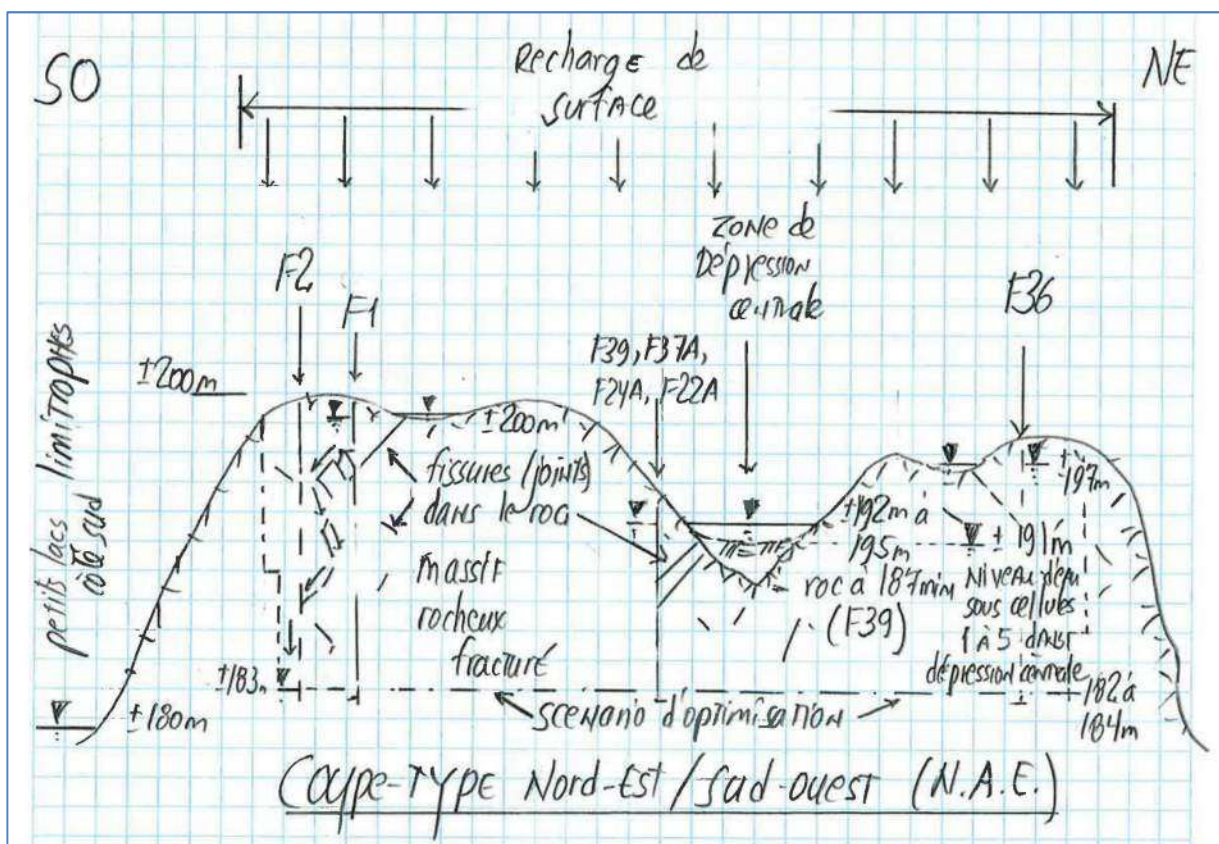 SO
Recharge de
surface
NE
Zone de
Dépression
centrale
F2
F1
F36
F39, F37A,
F24A, F22A
petits lacs limitrophes
côté sud
±200m
±200m
fissures (joints)
dans le roc
massif
rocheux
fracturé
±192m à
195m
roc à 187m min
(F39)
±
197m
± 191m
Niveau d'eau
sous cellules
1 à 5 dans
dépression centrale
±183m
±180m
scenario d'optimisation
182 à
184m
Coupe-Type Nord-Est/sud-ouest (N.A.E.)